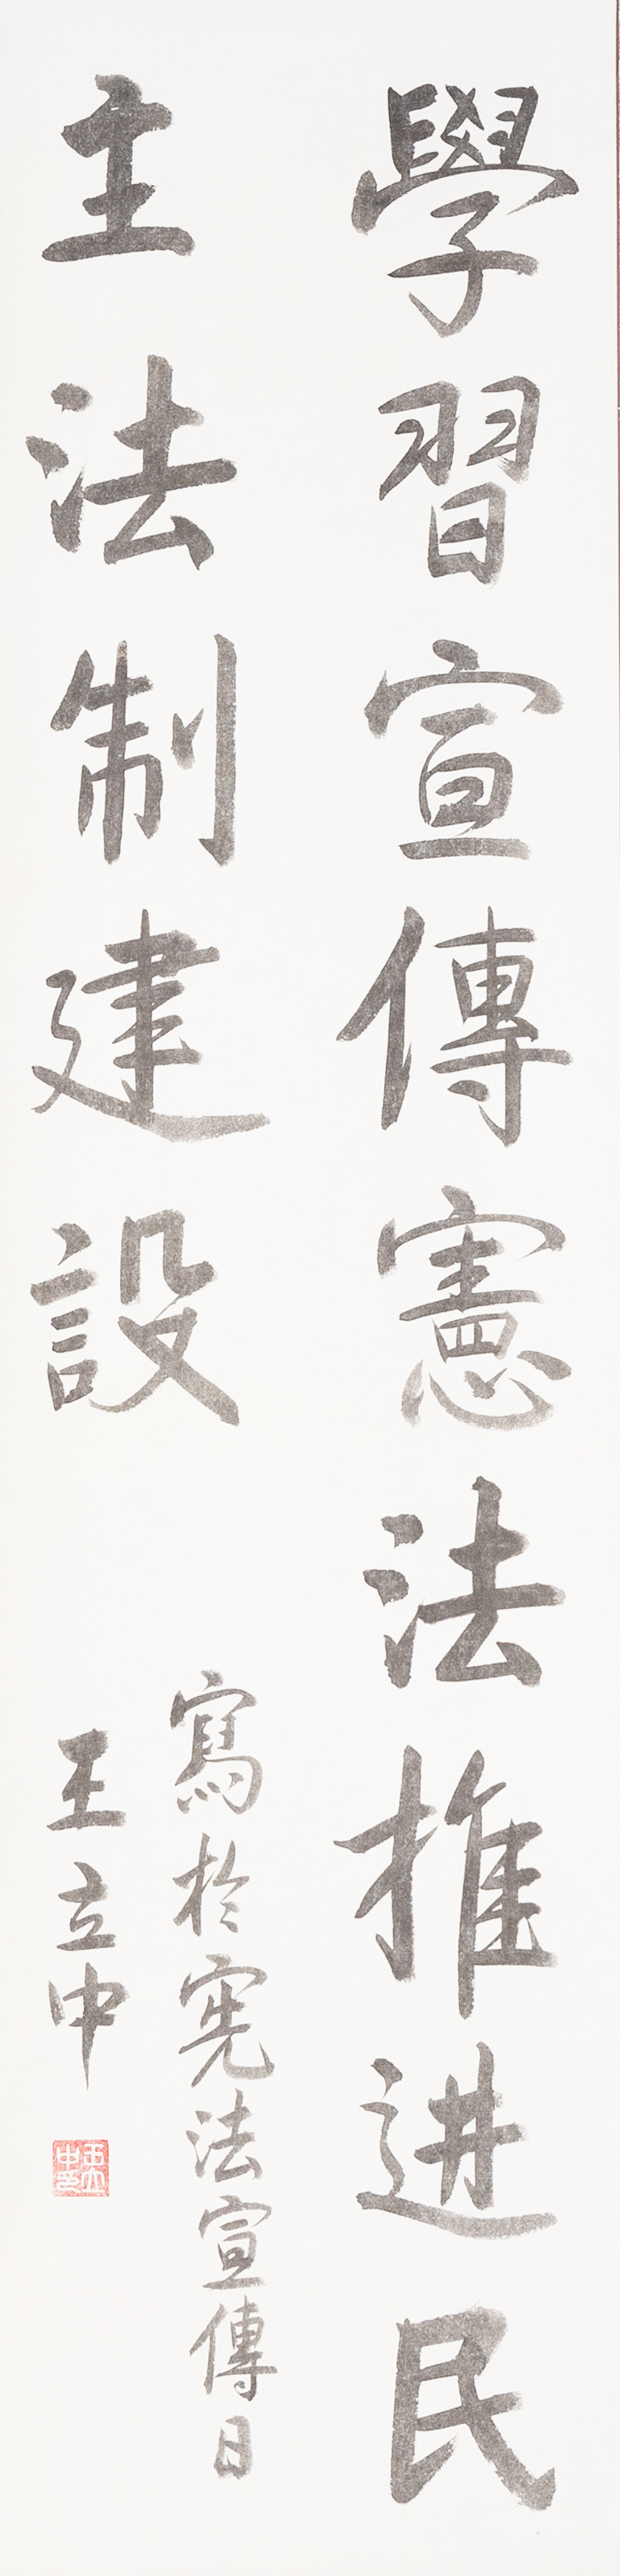 學習宣傳憲法推进民
主法制建設
寫於宪法宣傳日
王立中
王立中印